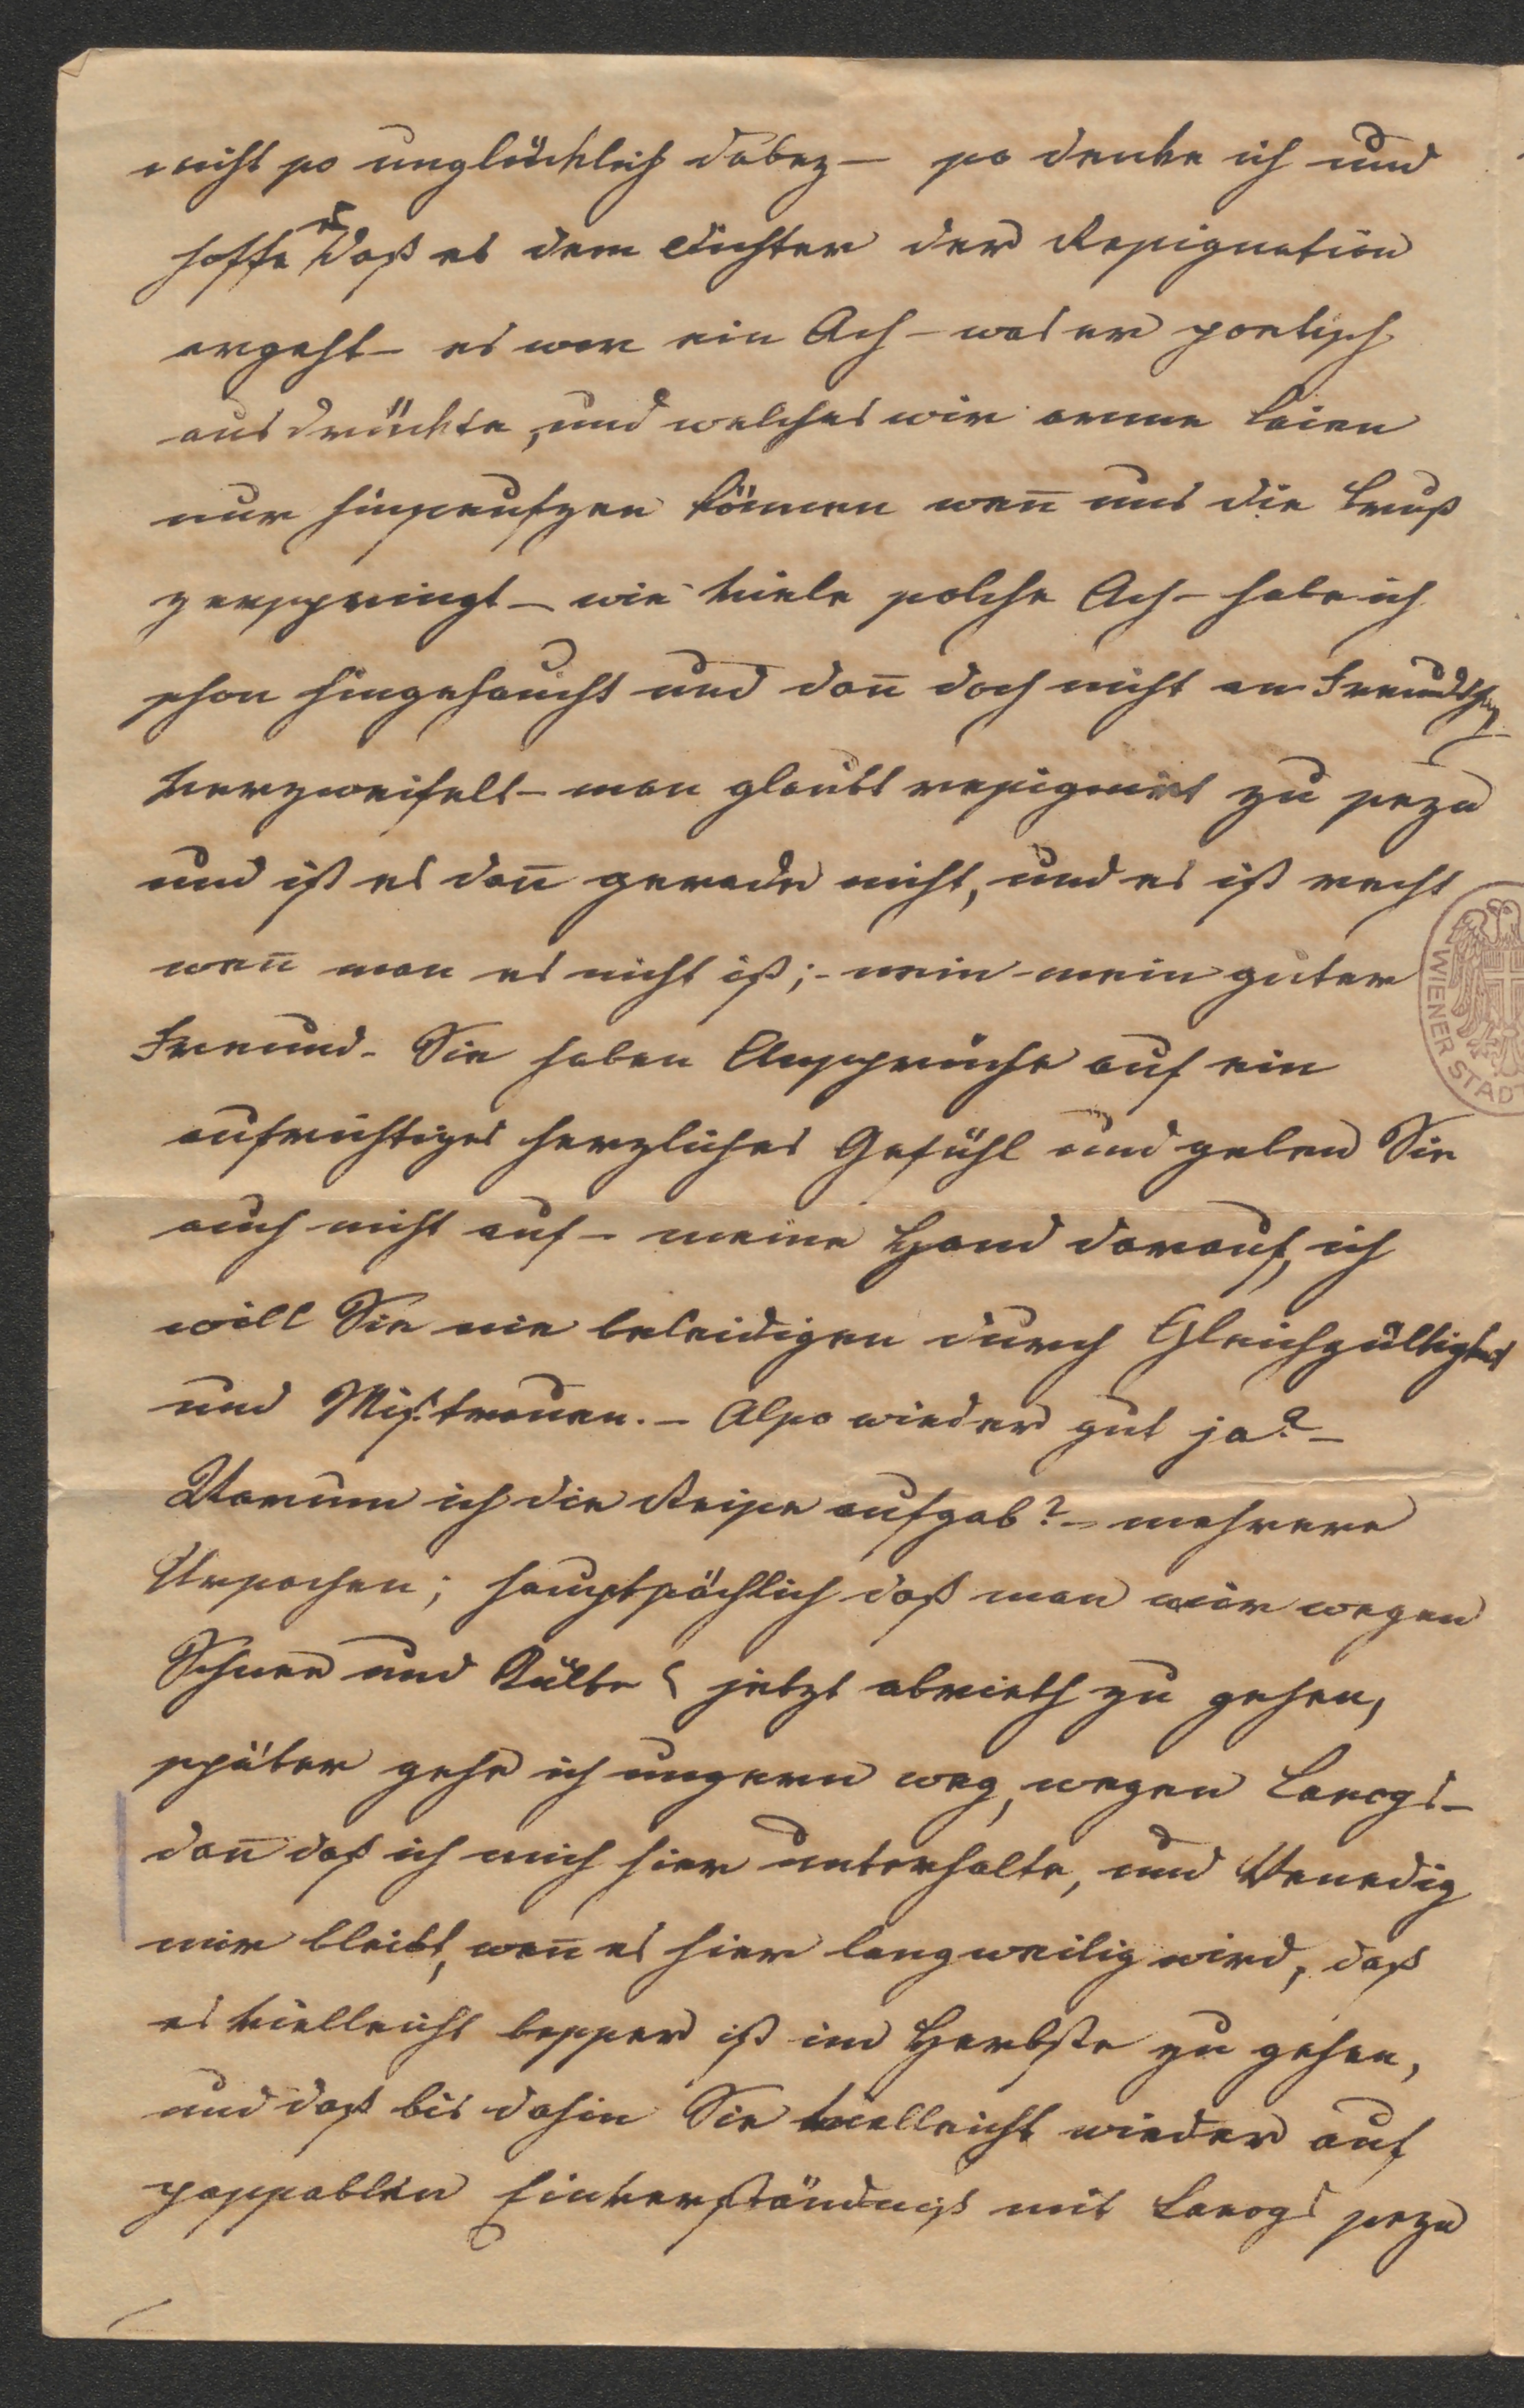 nicht so unglücklich dabey – so denke ich und
hoffe ich daß es dem Dichter der Resignation
ergeht – es war ein Ach – was er poetisch
ausdrückte, und welches wir arme Laien
nur hinseufzen können wen̄ uns die Brust
zerspringt – wie viele solche Ach – habe ich
schon hingehaucht und dan̄ doch nicht an Freundschaft
verzweifelt – man glaubt resignirt zu seyn
und ist es dan̄ gerade nicht, und es ist recht
wen̄ man es nicht ist; – nein – mein guter
Freund – Sie haben Ansprüche auf ein
aufrichtiges herzliches Gefühl und geben Sie
auch nicht auf – meine Hand darauf, ich
will Sie nie beleidigen durch Gleichgültigkeit
und Mißtrauen. – Also wieder gut ja? –
Warum ich die Reise aufgab? – mehrere
Ursachen; hauptsächlich daß man mir wegen
Schnee und Kälte jetzt abrieth zu gehen,
später gehe ich ungern weg, wegen Laroys –
dan̄ daß ich mich hier unterhalte, und Venedig
mir bleibt, wen̄ es hier langweilig wird, daß
es vielleicht besser ist im Herbste zu gehen,
und daß bis dahin Sie vielleicht wieder auf
passablen Einverständniß mit Laroys seyn
WIENER STADT